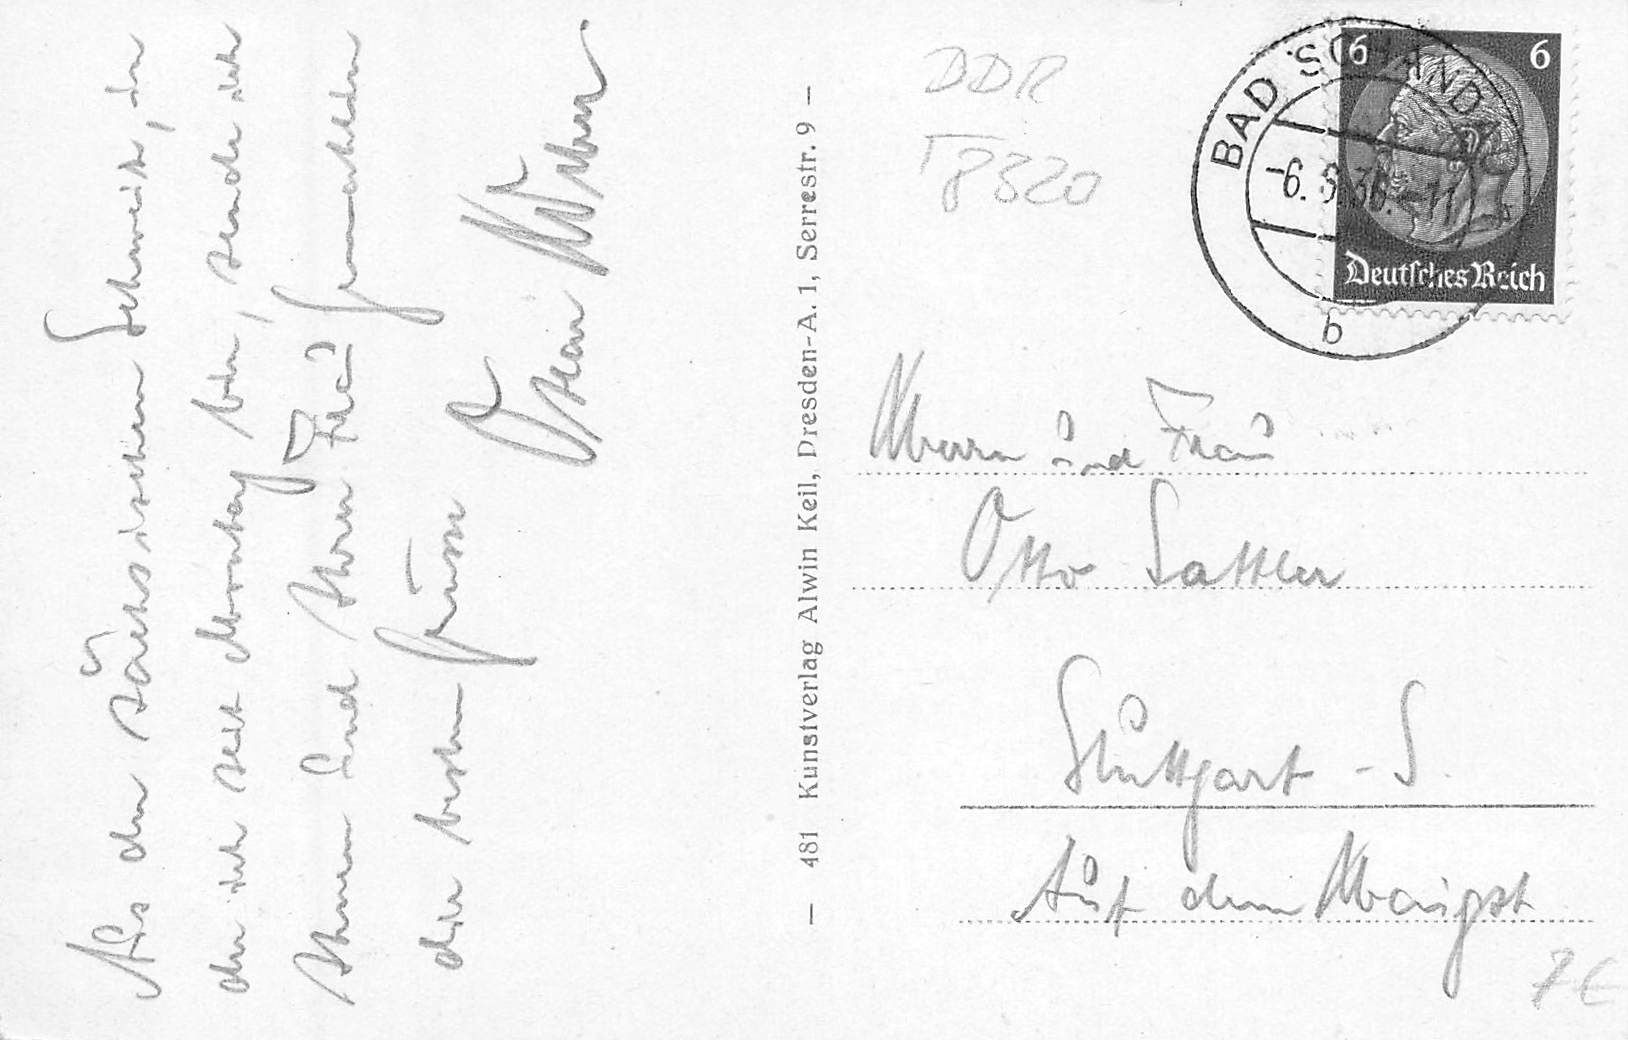 Aus der sächsischen Schweiz, in
der ich seit Montag bin, sende ich
Ihnen und Ihrer Frau Gemahlin
die besten Grüsse
Ihr
DDR
T 8320
BAD SCHAND
-6. 3
-11
b
6 6
Deutsches Reich
— 481 Kunstverlag Alwin Keil, Dresden-A. 1, Serrestr. 9 —
Herrn und Frau
Otto Sattler
Stuttgart - S.
Auf dem Haigst
7 €